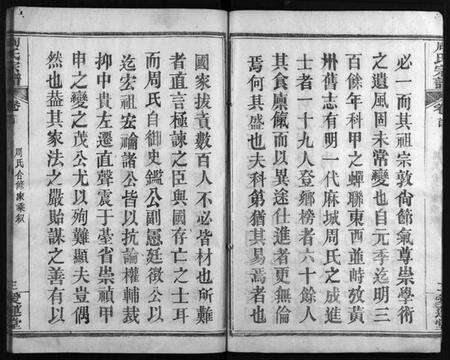 周氏宗譜
卷首
二
愛蓮堂
必一而其祖宗敦尙節氣尊崇學術
之遺風固未常變也自元季迄明三
百餘年科甲之蟬聯東西並峙攷黃
州舊志有明一代麻城周氏之成進
士者一十九人登鄉榜者六十餘人
其食廩餼而以異途仕進者更無倫
焉何其盛也夫科第猶其易焉者也
國家拔萃數百人不必皆材也所難
者直言極諫之臣與國存亡之士耳
而周氏自御史鑑公副憲廷徵公以
迄宏祖宏禴諸公皆以抗論權輔裁
抑中貴左遷直聲震于臺省崇禎甲
申之變之茂公尤以殉難顯夫豈偶
然也葢其家法之嚴貽謀之善有以
周氏宗譜
卷首
周氏合修東華叙
三
愛蓮堂